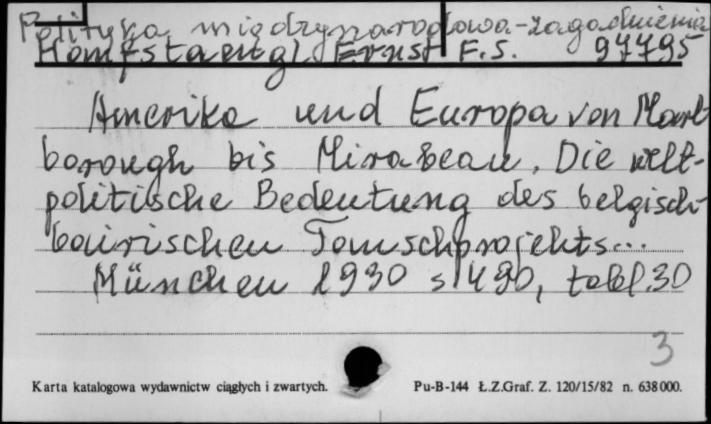 Polityka międzynarodowa-zagadnienia
Hanfstaengl Ernst F.S. 97795
Amerika und Europa von Marl-
borough bis Mirabeau. Die welt-
politische Bedeutung des belgisch-
bairischen Tauschprojekts...
München 1930 s. 490, tabl. 30
3
Karta katalogowa wydawnictw ciągłych i zwartych. Pu-B-144 Ł.Z.Graf. Z. 120/15/82 n. 638000.